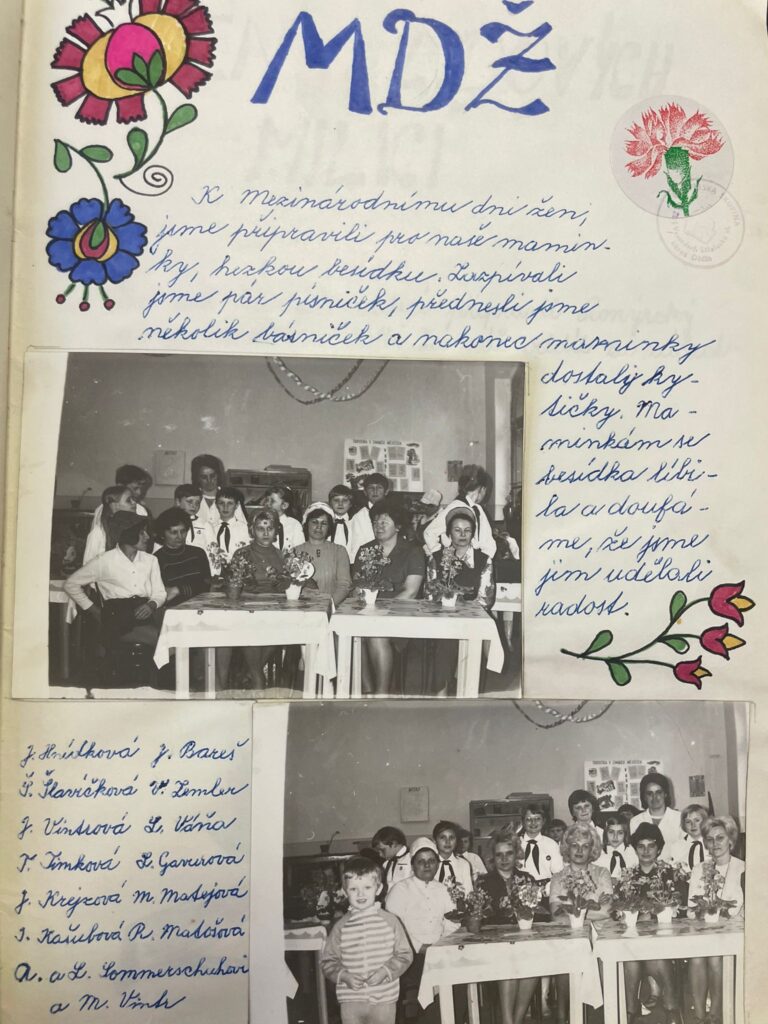 MDŽ
K Mezinárodnímu dni žen,
jsme připravili pro naše mamin-
ky, hezkou besídku. Zazpívali
jsme pár písniček, přednesli jsme
několik básniček a nakonec maminky
dostaly ky-
tičky. Ma-
minkám se
besídka líbi-
la a doufá-
me, že jsme
jim udělali
radost.
J. Hnídková J. Bareš
Š. Slavíčková V. Zemler
J. Vintrová L. Váňa
T. Timková L. Gavurová
J. Krýzová M. Matějová
I. Kašubová R. Matošová
A. a L. Sommerschuhovi
a M. Vintr